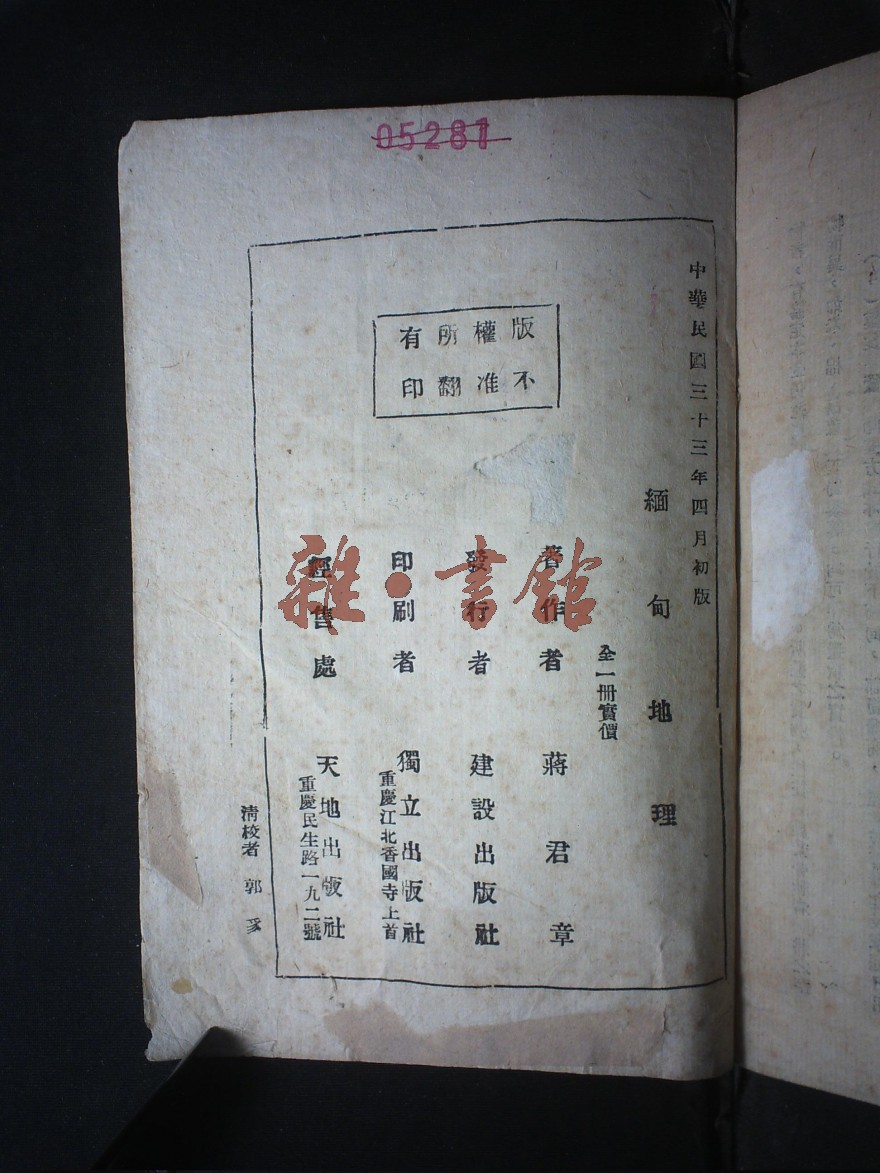 05281
中華民國三十三年四月初版
緬甸地理
全一冊實價
版權所有
不准翻印
著作者 蔣君章
發行者 建設出版社
印刷者 獨立出版社
重慶江北香國寺上首
經售處 天地出版社
重慶民生路一九二號
清校者 郭
雜·書館